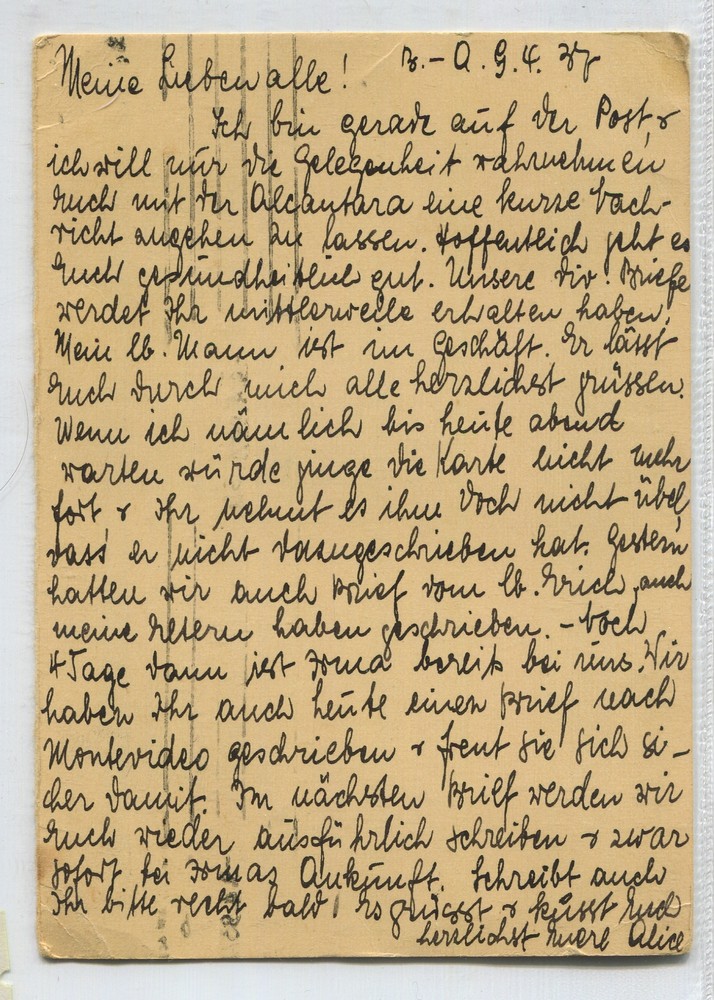 B.-A. 9.4.37
Meine Lieben alle!
Ich bin gerade auf der Post, &
ich will nur die Gelegenheit wahrnehmen
Euch mit der Alcantara eine kurze Nach-
richt zugehen zu lassen. Hoffentlich geht es
Euch gesundheitlich gut. Unsere div. Briefe
werdet Ihr mittlerweile erhalten haben.
Mein lb. Mann ist im Geschäft. Er lässt
Euch durch mich alle herzlichst grüssen.
Wenn ich nämlich bis heute abend
warten würde ginge die Karte nicht mehr
fort & Ihr nehmt es ihm doch nicht übel,
dass er nicht dazugeschrieben hat. Gestern
hatten wir auch Brief vom lb. Erich, auch
meine Eltern haben geschrieben. - Noch
4 Tage dann ist Irma bereits bei uns. Wir
haben Ihr auch heute einen Brief nach
Montevideo geschrieben & freut sie sich si-
cher damit. Im nächsten Brief werden wir
Euch wieder ausführlich schreiben & zwar
sofort bei Irmas Ankunft. Schreibt auch
Ihr bitte recht bald. Es grüsst & küsst Euch
herzlichst Eure Alice